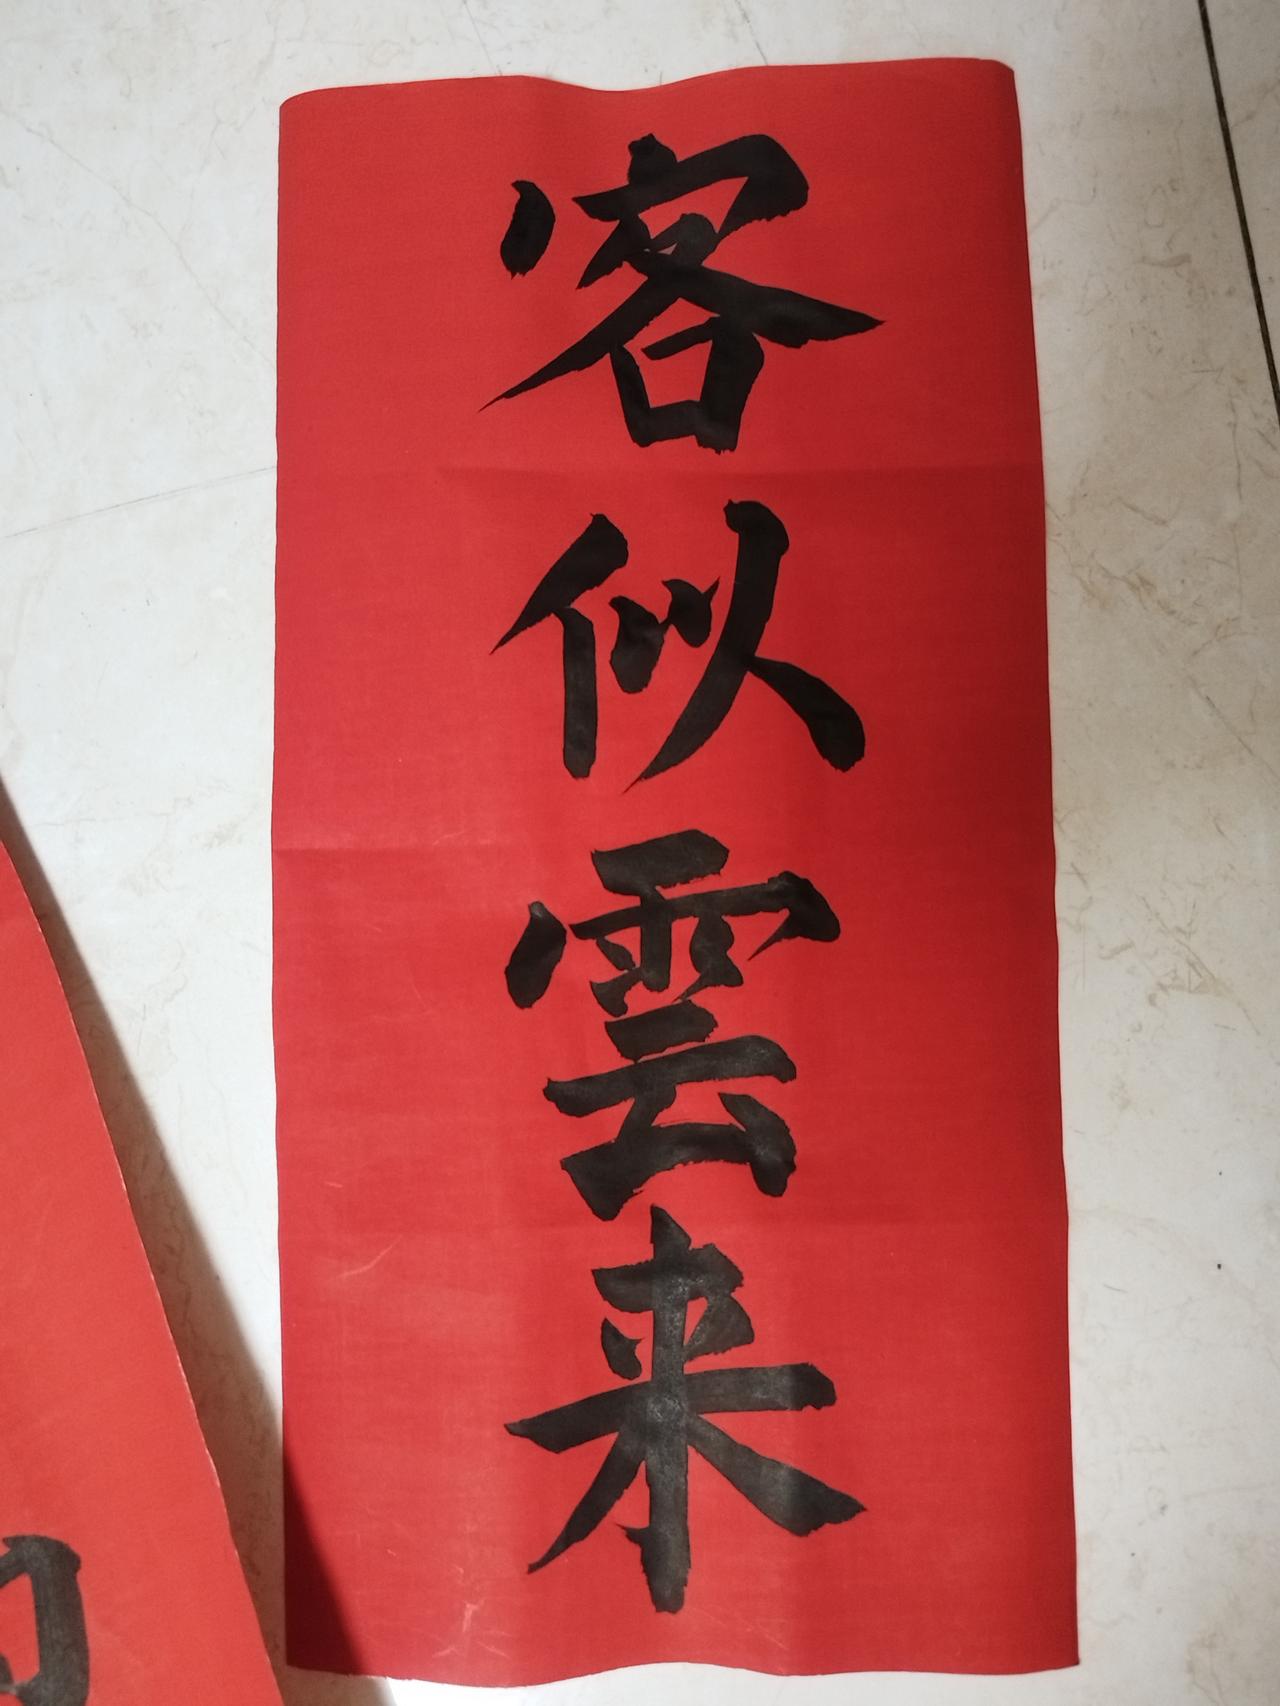 客似雲来